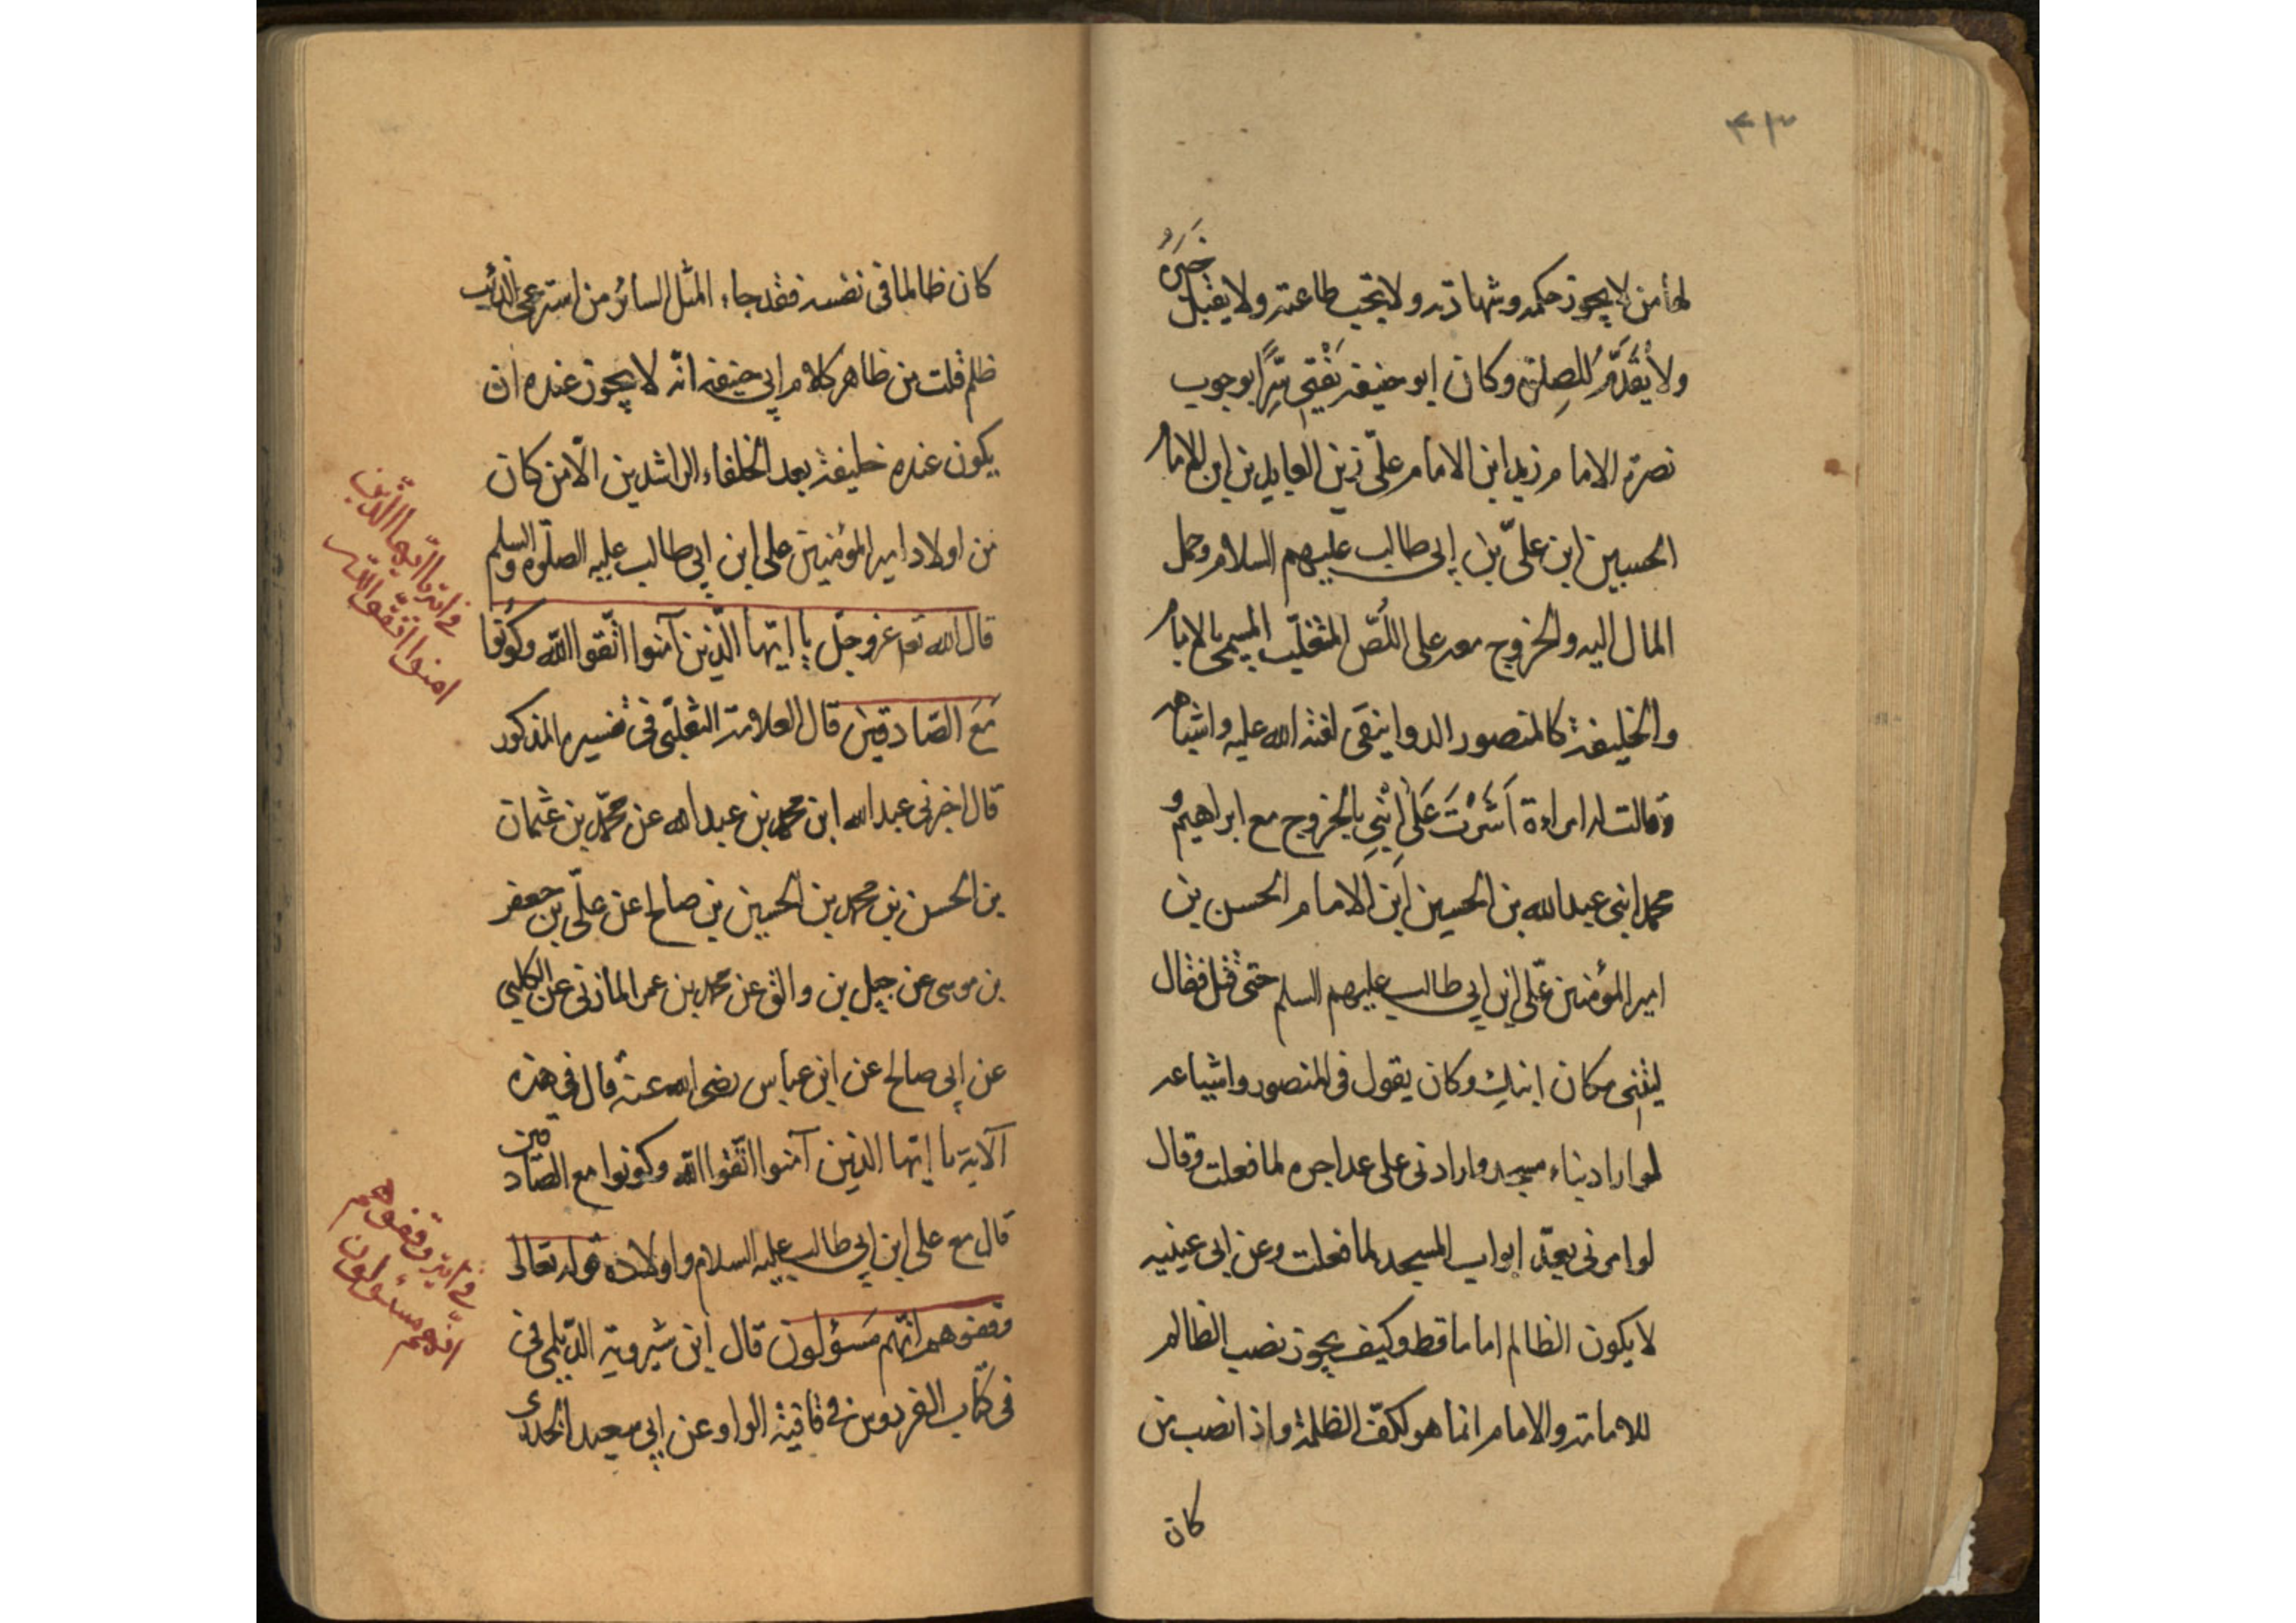 ٤١٣
لها من لا يجوز حكمه وشهادته ولا تجب طاعته ولا يقبل خبره
ولا يُقدَّم للصلوة وكان ابو حنيفه يفتي سِرًّا بوجوب
نصرة الامام زيد ابن الامام علىّ زين العابدين ابن الامام
الحسين ابن علىّ بن ابى طالب عليهم السلام وحمل
المال اليه والخروج معه على اللُصّ المتغلّب المسمى بالامام
والخليفة كالمنصور الدوانيقى لعنة الله عليه واشباهه
وقالت له امراءة اَشَرْتَ عَلَى اِبْنِي بالخروج مع ابراهيم و
محمد ابنى عبدالله بن الحسين ابن الامام الحسن بن
امير المؤمنين علّى ابن ابى طالب عليهم السلم حتى قتل فقال
ليتنى مكان ابنك وكان يقول فى المنصور واشياعه
لو ارادبناء مسجد وارادنى على عد اجره لما فعلت وقال
لو امرنى بعدّ ابواب المسجد لما فعلت وعن ابى عينيه
لا يكون الظالم اماما قط وكيف يجوز نصب الظالم
للامامة والامام انما هو لكفّ الظلمة واذا نصب من
كان
كان ظالما فى نفسه فقد جاء المثل السائر من استرعى الذئب
ظلم قلت من ظاهر كلام ابي حنيفه انّه لا يجوز عنده ان
يكون عنده خليفة بعد الخلفاء الراشدين الّا من كان
من اولاد امير المؤمنين على ابن ابى طالب عليه الصلوة والسلم
قال الله تعه عزوجلّ يا ايّها الّذين آمنوا اتّقوا الله وكُونُوا
مَعَ الصّادقين قال العلامة الثعلبّى فى تفسيره المذكور
قال اخبرنى عبدالله ابن محمد بن عبدالله عن محمّد بن عثمان
بن الحسن بن محمد بن الحسين بن صالح عن علّى بن جعفر
بن موسى عن جبل بن والق عن محمد بن عمر المازنى عن الكلبي
عن ابى صالح عن ابن عباس رضى الله عنه قال فى هذه
آلاية يا ايّها الذين آمنوا اتّقوا الله وكونوا مع الصّادقين
قال مع على ابن ابى طالب عليه السلام واولاده قوله تعالى
وقفوهم انّهم مَسؤلون قال ابن شيرويه الدّيلمى فى
فى كتاب الفردوس فى قافية الواو عن ابى سعيد الخدرى
فى اية يا ايّها الّذين
امنوا اتقّوا اللّه
فى اية وقفوهم
انّهم مسئولون